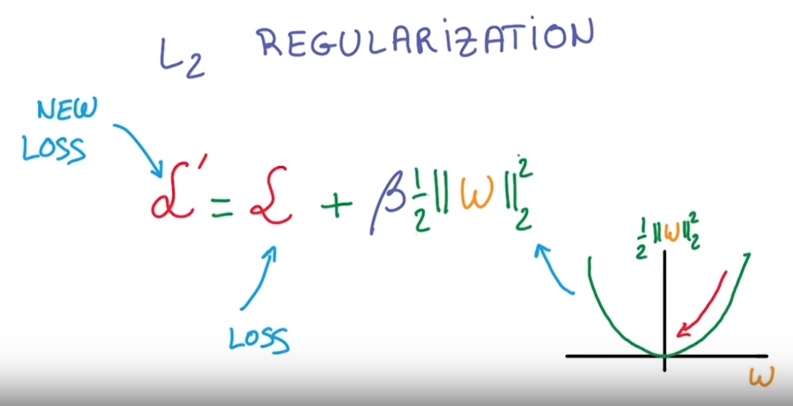 L₂ REGULARIZATION
NEW
LOSS
ℒ' = ℒ + β ½ ||ω||₂²
LOSS
½ ||ω||₂²
ω